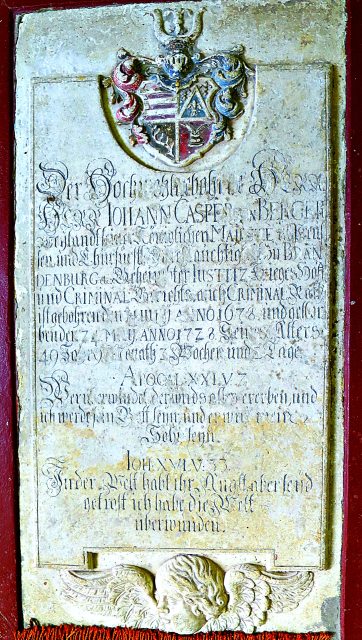 Der HochWohlgebohrne HERR
HERR JOHANN CASPER v. BERGER
Weylandt Sr. Königlichen MAJ: in Preus
sen und Churfürstl. Durchlauchtig. zu BRAN
DENBURG Geheimbter JUSTITZ Krieges Hoff
und CRIMINAL Gerichts auch CRIMINAL Rath
ist gebohren den ANNO 1678 und gestor
ben den 24 MAY ANNO 1728 Seines Alters
49 Jahr Monath 3 Wochen und Tage
APOC. XXI. V. 7
Wer überwindet der wird alles ererben, und
ich werde sein Gott seyn, und er wird mein
Sohn seyn.
IOH. XVI. V. 33.
In der Welt habt ihr Angst aber seyd
getrost ich habe die Welt
überwunden.